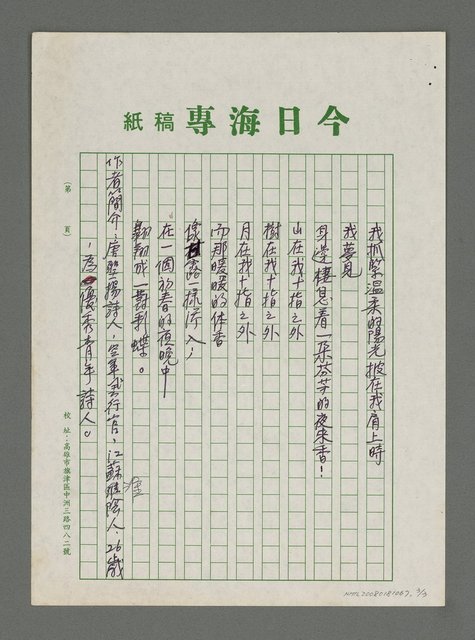 今日海專稿紙
我抓緊溫柔的陽光披在我肩上時
我夢見
耳邊棲息着一朵芬芳的夜來香！
山在我十指之外
樹在我十指之外
月在我十指之外
而那暖暖的体香
像甘露一樣滲入：
在一個初春的夜晚中
翱翔成一對彩蝶。
作者簡介：詩人，空軍飛行官，江蘇淮陰人，26歲
，為優秀青年詩人。
（第　　頁）
校址：高雄市旗津區中洲三路四八二號
NMTL20080181067. 3/3